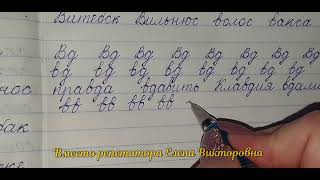 Витебск Вильнюс волос вакса
Вд Вд Вд Вд Вд Вд Вд
вд вд вд вд вд вд вд вд
нос правда вдавить Клавдия вдали
вв вв вв вв
бак
Вместо репетитора Елена Викторовна